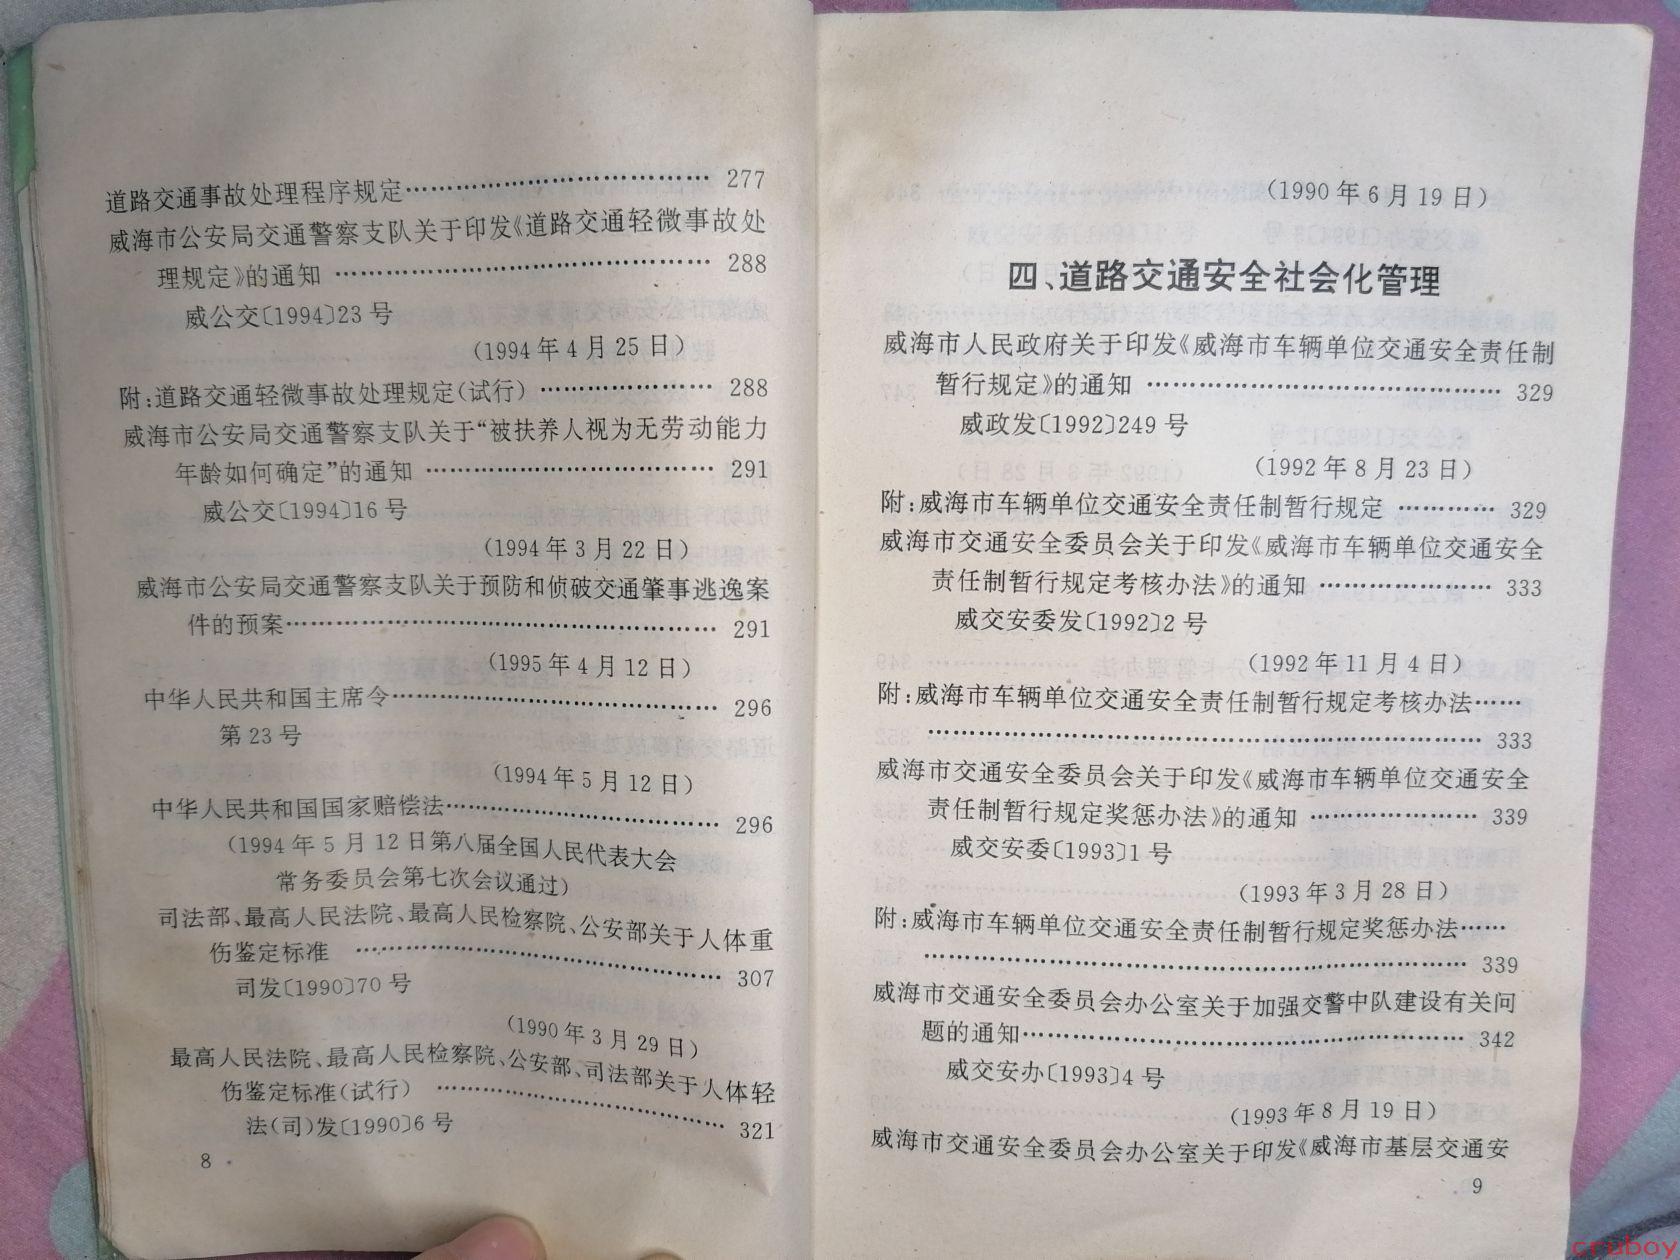 道路交通事故处理程序规定…………………………………… 277
威海市公安局交通警察支队关于印发《道路交通轻微事故处
理规定》的通知 …………………………………………… 288
威公交〔1994〕23号
（1994年4月25日）
附：道路交通轻微事故处理规定（试行） ………………… 288
威海市公安局交通警察支队关于“被扶养人视为无劳动能力
年龄如何确定”的通知 ………………………………… 291
威公交〔1994〕16号
（1994年3月22日）
威海市公安局交通警察支队关于预防和侦破交通肇事逃逸案
件的预案………………………………………………… 291
（1995年4月12日）
中华人民共和国主席令…………………………………… 296
第23号
（1994年5月12日）
中华人民共和国国家赔偿法……………………………… 296
（1994年5月12日第八届全国人民代表大会
常务委员会第七次会议通过）
司法部、最高人民法院、最高人民检察院、公安部关于人体重
伤鉴定标准 ………………………………………… 307
司发〔1990〕70号
（1990年3月29日）
最高人民法院、最高人民检察院、公安部、司法部关于人体轻
伤鉴定标准（试行） ………………………………… 321
法（司）发〔1990〕6号
8
（1990年6月19日）
四、道路交通安全社会化管理
威海市人民政府关于印发《威海市车辆单位交通安全责任制
暂行规定》的通知 ………………………………………… 329
威政发〔1992〕249号
（1992年8月23日）
附：威海市车辆单位交通安全责任制暂行规定 ………… 329
威海市交通安全委员会关于印发《威海市车辆单位交通安全
责任制暂行规定考核办法》的通知 ………………… 333
威交安委发〔1992〕2号
（1992年11月4日）
附：威海市车辆单位交通安全责任制暂行规定考核办法……
………………………………………………………………… 333
威海市交通安全委员会关于印发《威海市车辆单位交通安全
责任制暂行规定奖惩办法》的通知 ………………… 339
威交安委〔1993〕1号
（1993年3月28日）
附：威海市车辆单位交通安全责任制暂行规定奖惩办法……
………………………………………………………………… 339
威海市交通安全委员会办公室关于加强交警中队建设有关问
题的通知………………………………………………… 342
威交安办〔1993〕4号
（1993年8月19日）
威海市交通安全委员会办公室关于印发《威海市基层交通安
9
cruboy